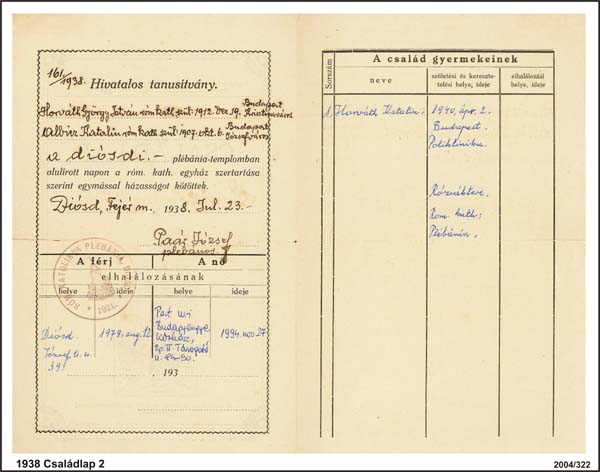 161/1938. Hivatalos tanusítvány.
Horváth György István róm. kath. szül: 1912. Dec. 19. Budapest Krisztinaváros
Albin Katalin róm. kath. szül: 1907. okt. 6. Budapest Józsefváros
a diósdi.- plébánia-templomban
alulirott napon a róm. kath. egyház szertartása
szerint egymással házasságot kötöttek.
Diósd, Fejér m. 1938 Jul. 23.-
Paár József
plébános
RÓM. KATOLIKUS PLÉBÁNIA, DIÓSD
1921.
A férj A nő
elhalálozásának
helye ideje helye ideje
Diósd, 1979. aug. 12.
József A. u.
39.
Pest
Kórház,
Bp. II. Tárogató
u. 84-90.
1994. nov. 27.
. 193
Sorszám
A család gyermekeinek
neve
születési és keresztelési helye, ideje
elhalálozási helye, ideje
1. Horváth Katalin. 1940. ápr. 2.
Budapest.
Poliklinika
Rózsa
Rom. kath:
Plébánia.
1938 Családlap 2
2004/322